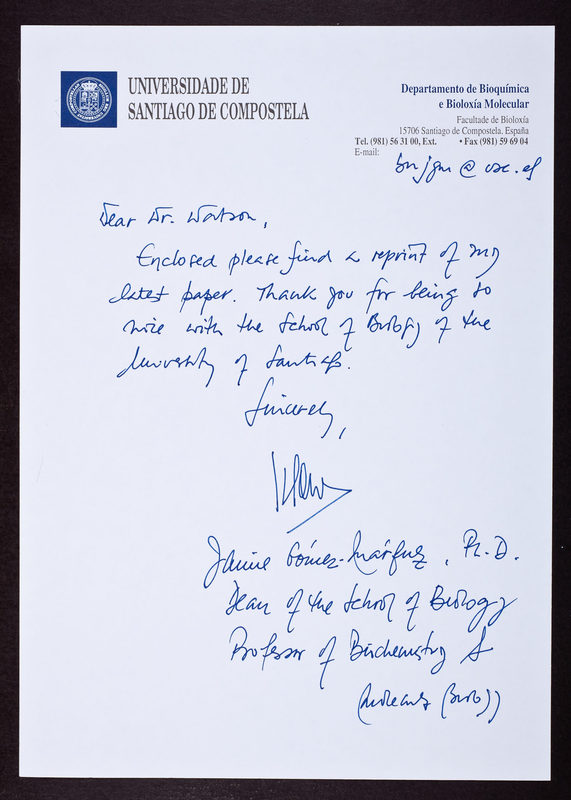 UNIVERSIDADE DE
SANTIAGO DE COMPOSTELA
Departamento de Bioquímica
e Bioloxía Molecular
Facultade de Bioloxía
15706 Santiago de Compostela. España
Tel. (981) 56 31 00, Ext. • Fax (981) 59 69 04
E-mail: bnjgm@usc.es
Dear Dr. Watson,
Enclosed please find a reprint of my
latest paper. Thank you for being so
nice with the School of Biology of the
University of Santiago.
Sincerely,
Jaime Gómez-Márquez, Ph.D.
Dean of the School of Biology
Professor of Biochemistry &
Molecular Biology